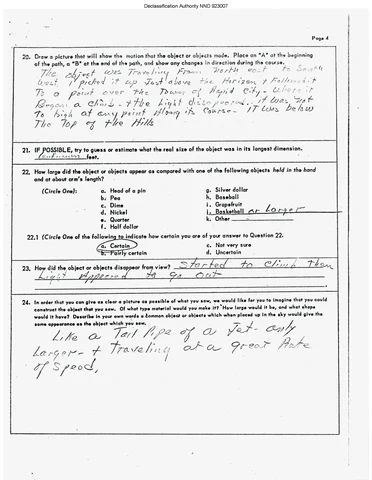 Declassification Authority NND 923007
Page 4
20. Draw a picture that will show the motion that the object or objects made. Place an "A" at the beginning
of the path, a "B" at the end of the path, and show any changes in direction during the course.
The object was Traveling From North east to South
west I picked it up Just above the Horizon & Followed it
To a point over the Town of Rapid City - where it
Began a climb - & the Light disappeared. it was not
To high at any point Along its Course - IT was below
The Top of the Hills
21. IF POSSIBLE, try to guess or estimate what the real size of the object was in its longest dimension.
feet.
22. How large did the object or objects appear as compared with one of the following objects held in the hand
and at about arm's length?
(Circle One): a. Head of a pin g. Silver dollar
b. Pea h. Baseball
c. Dime i. Grapefruit
d. Nickel j. Basketball or Larger
e. Quarter k. Other
f. Half dollar
22.1 (Circle One of the following to indicate how certain you are of your answer to Question 22.
a. Certain c. Not very sure
b. Fairly certain d. Uncertain
23. How did the object or objects disappear from view? Started to Climb Then
Light Appeared to go out
24. In order that you can give as clear a picture as possible of what you saw, we would like for you to imagine that you could
construct the object that you saw. Of what type material would you make it? How large would it be, and what shape
would it have? Describe in your own words a common object or objects which when placed up in the sky would give the
same appearance as the object which you saw.
Like a Tail Pipe of a Jet - only
Larger - & Traveling at a great Rate
of Speed.